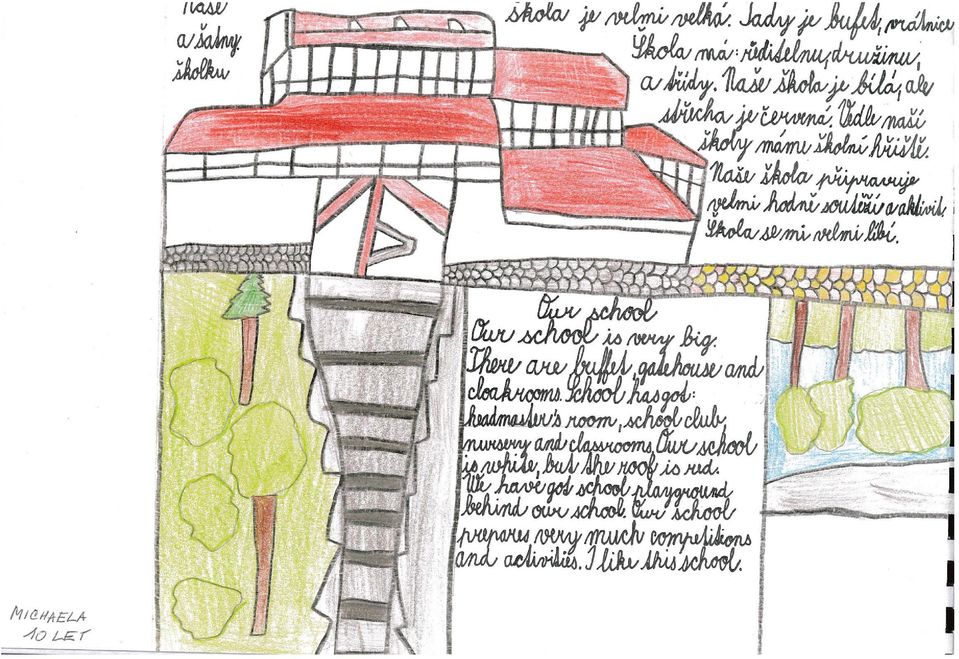 Naše škola je velmi velká. Tady je bufet, vrátnice
a šatny. Škola má: ředitelnu, družinu,
školku a třídy. Naše škola je bílá, ale
střecha je červená. Vedle naší
školy máme školní hřiště.
Naše škola připravuje
velmi hodně soutěží a aktivit.
Škola se mi velmi líbí.
Our school
Our school is very big.
There are buffet, gatehouse and
cloakrooms. School has got:
headmaster's room, school club,
nursery and classrooms. Our school
is white, but the roof is red.
We have got school playground
behind our school. Our school
prepares very much competitions
and activities. I like this school.
MICHAELA
10 LET